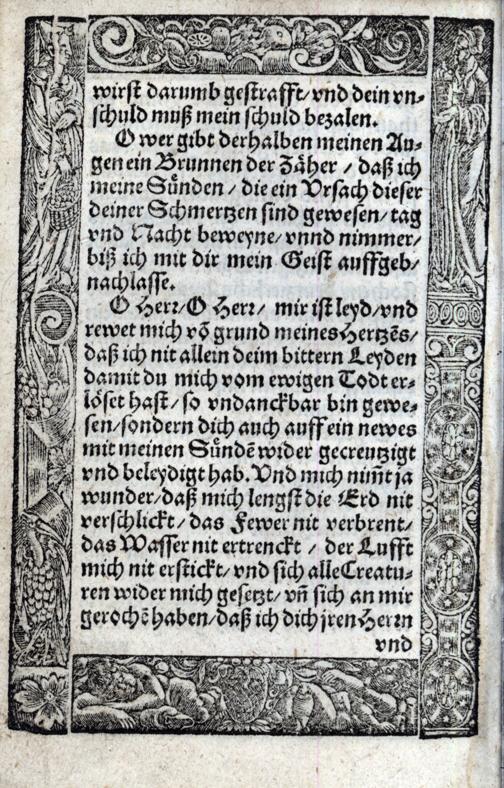 wirst darumb gestrafft/ vnd dein vn⸗
schuld muß mein schuld bezalen.
O wer gibt derhalben meinen Au⸗
gen ein Brunnen der Zäher / daß ich
meine Sünden / die ein Vrsach dieser
deiner Schmertzen sind gewesen/ tag
vnd Nacht beweyne/ vnnd nimmer/
biß ich mit dir mein Geist auffgeb/
nachlasse.
O Herr/ O Herr/ mir ist leyd/ vnd
rewet mich võ grund meines Hertzẽs/
daß ich nit allein deim bittern Leyden
damit du mich vom ewigen Todt er⸗
löset hast/ so vndanckbar bin gewe⸗
sen/ sondern dich auch auff ein newes
mit meinen Sündẽ wider gecreutzigt
vnd beleydigt hab. Vnd mich nim̃t ja
wunder/ daß mich lengst die Erd nit
verschlickt/ das Fewer nit verbrent/
das Wasser nit ertrenckt / der Lufft
mich nit erstickt/ vnd sich alle Creatu⸗
ren wider mich gesetzt/ vñ sich an mir
gerochẽ haben/ daß ich dich jren Herrn
vnd